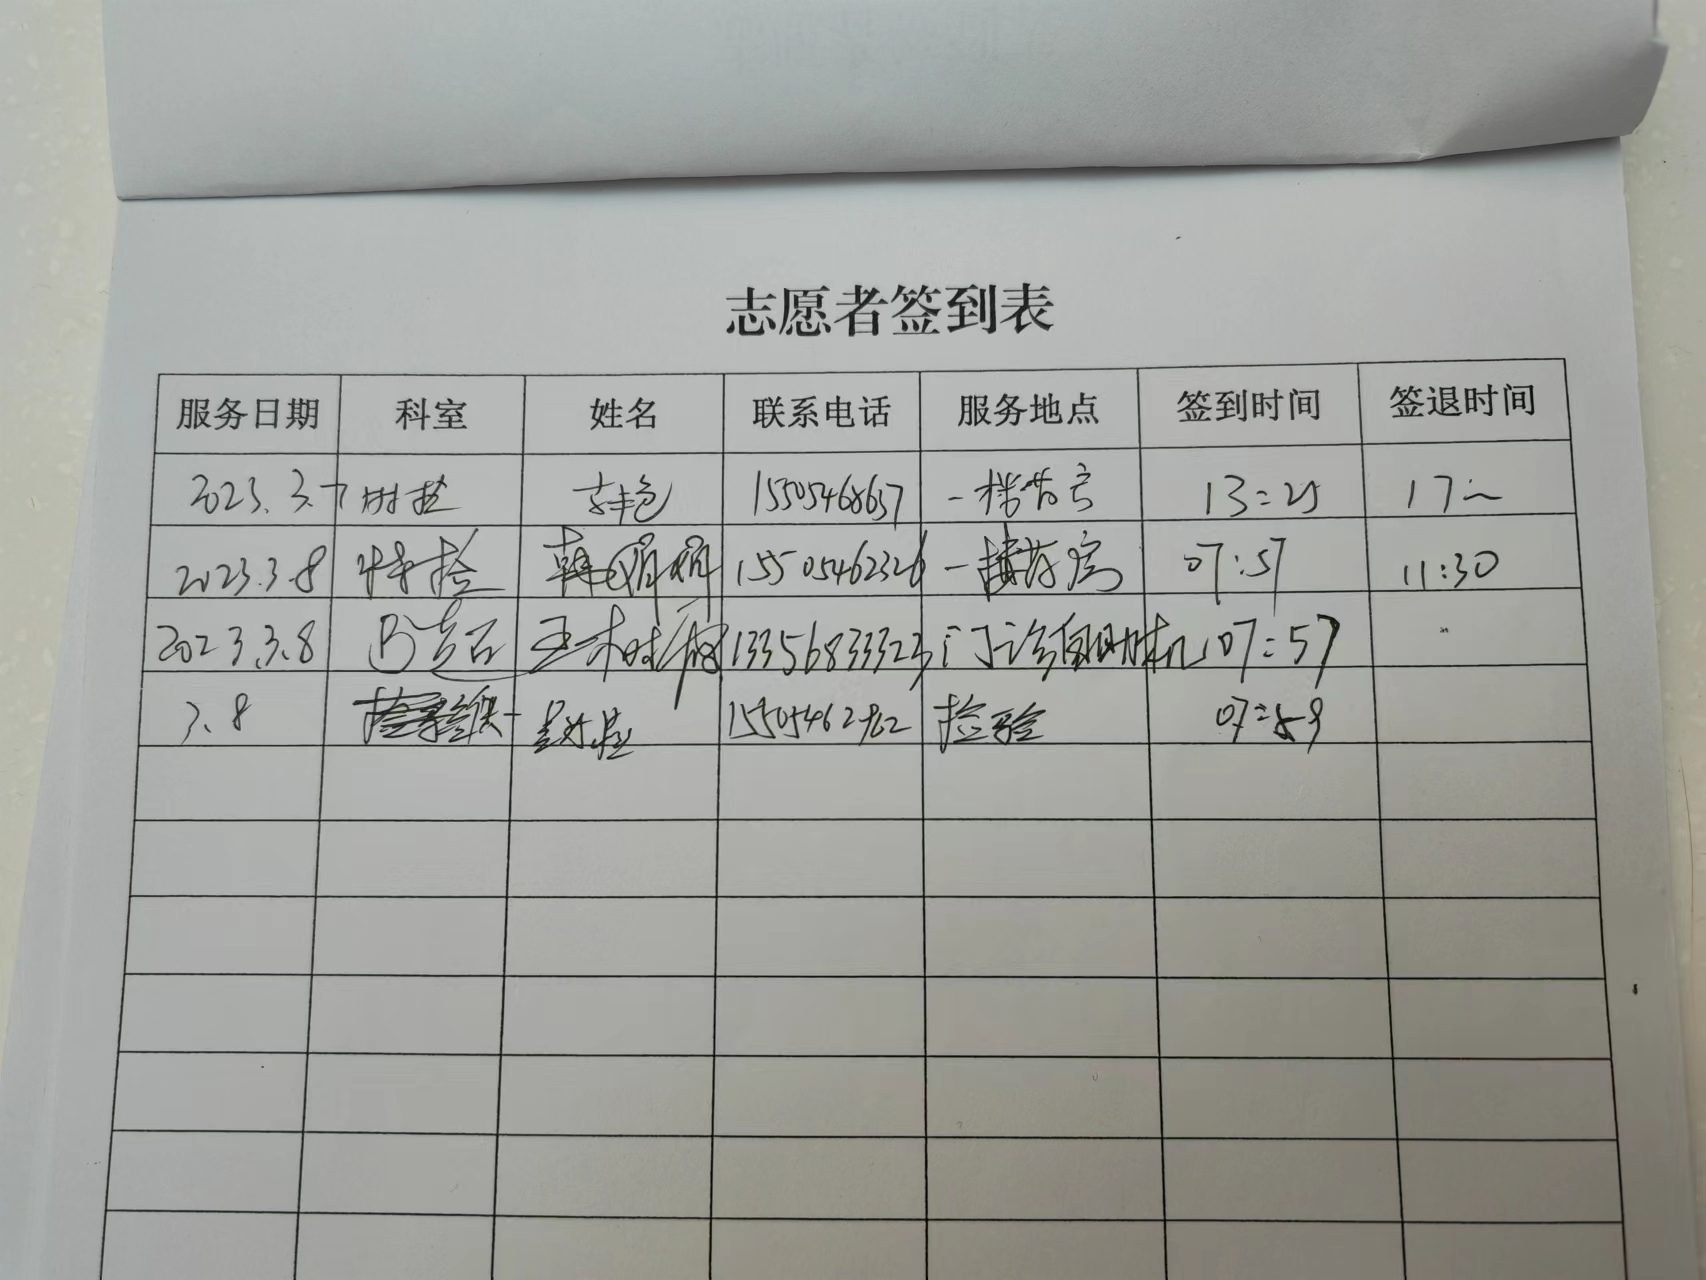 志愿者签到表
服务日期 科室 姓名 联系电话 服务地点 签到时间 签退时间
2023.3.7 特检 15505468637 一楼药房 13:25 17:
2023.3.8 特检 韩娟娟 15505462326 一楼药房 07:57 11:30
2023.3.8 王 13356833323 门诊自助机 07:57
3.8 检验 15505462962 检验 07:59